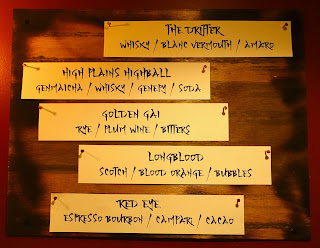 THE DRIFTER
WHISKY / BLANC VERMOUTH / AMARO
HIGH PLAINS HIGHBALL
GENMAICHA / WHISKY / GENEPY / SODA
GOLDEN GAI
RYE / PLUM WINE / BITTERS
LONGBLOOD
SCOTCH / BLOOD ORANGE / BUBBLES
RED EYE
ESPRESSO BOURBON / CAMPARI / CACAO